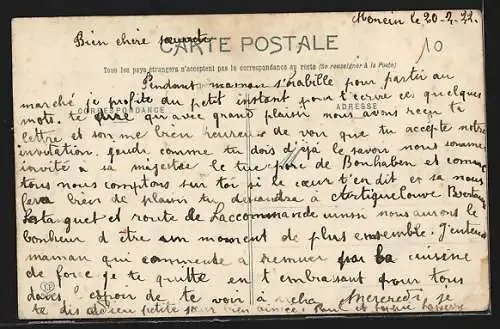 Monein le 20-2-22.
10
Bien chère soeurette
CARTE POSTALE
Tous les pays étrangers n'acceptent pas la correspondance au recto (Se renseigner à la Poste)
Pendant maman s'habille pour partir au
CORRESPONDANCE
ADRESSE
marché je profite du petit instant pour t'écrire ces quelques
mots, te dire qu'avec grand plaisir nous avons reçu ta
lettre et somme bien heureux de voir que tu accepte notre
invitation. comme tu dois déja le savoir nous sommes
invité a sa majestée le tue porc de Bonhaben et comme
tous nous comptons sur toi si le cœur t'en dit et sa nous
fera bien de plaisir tu descendra à Artiguelouve
et route de Laccommande aussi nous aurons le
bonheur d être un moment de plus ensemble. J'entend
maman qui commence a remuer par la cuisine
de force je te quitte en t embrassant pour tous
dans l espoir de te voir à Mercredi je
te dis adieu petite sœur bien aimée, Paul et